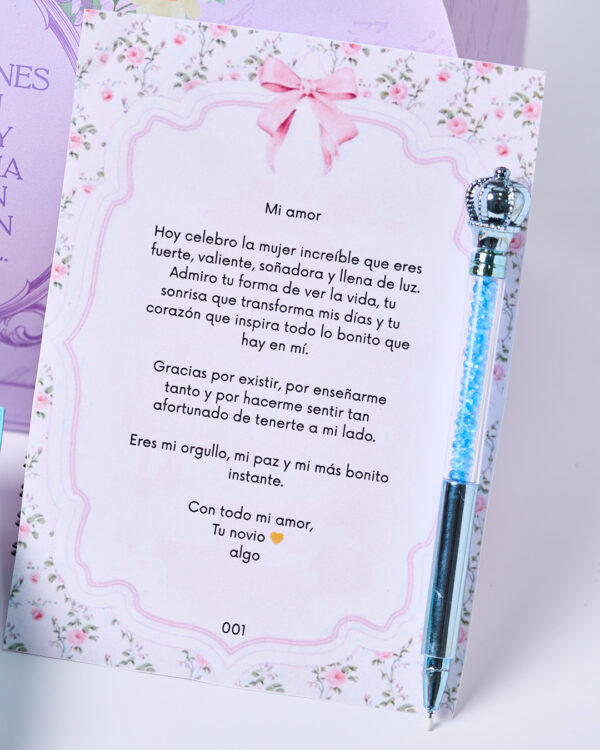 NES
Y
Mi amor
Hoy celebro la mujer increíble que eres
fuerte, valiente, soñadora y llena de luz.
Admiro tu forma de ver la vida, tu
sonrisa que transforma mis días y tu
corazón que inspira todo lo bonito que
hay en mí.
Gracias por existir, por enseñarme
tanto y por hacerme sentir tan
afortunado de tenerte a mi lado.
Eres mi orgullo, mi paz y mi más bonito
instante.
Con todo mi amor,
Tu novio 💛
algo
001